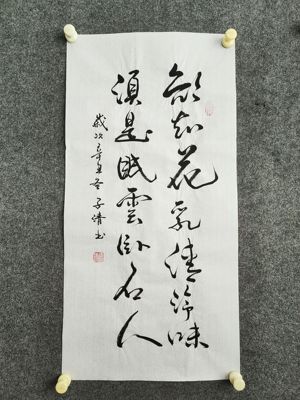 欲知花乳清泠味
須是眠雲卧石人
歲次辛丑冬子書